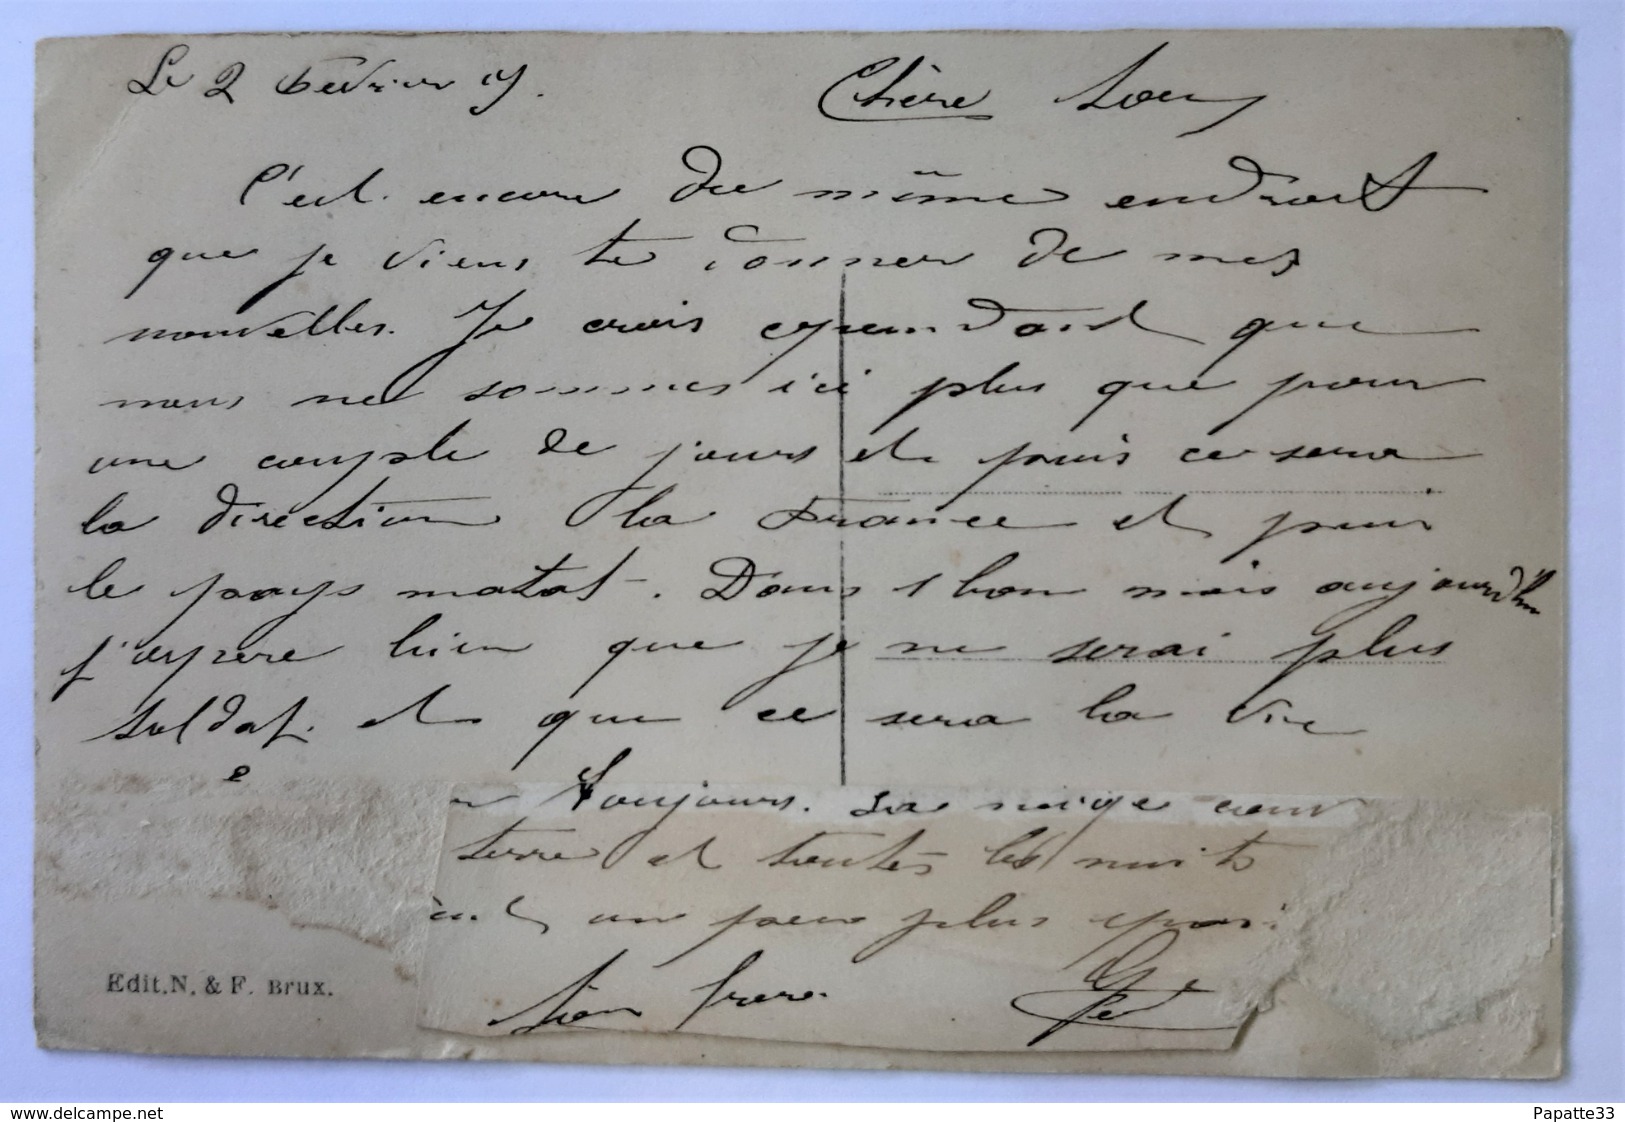 Le 2 Février 19.
Chère Soeur
C'est encore du même endroit
que je viens te donner de mes
nouvelles. Je crois cependant que
nous ne sommes ici plus que pour
une couple de jours et puis ce sera
la direction la France et puis
le pays natal. Dans 1 bon mois aujourd'hui
j'espère bien que je ne serai plus
soldat. et que ce sera la vie
Toujours. La neige
terre et toutes les nuits
un peu plus
Ton frere.
Edit. N. & F. Brux.
www.delcampe.net
Papatte33